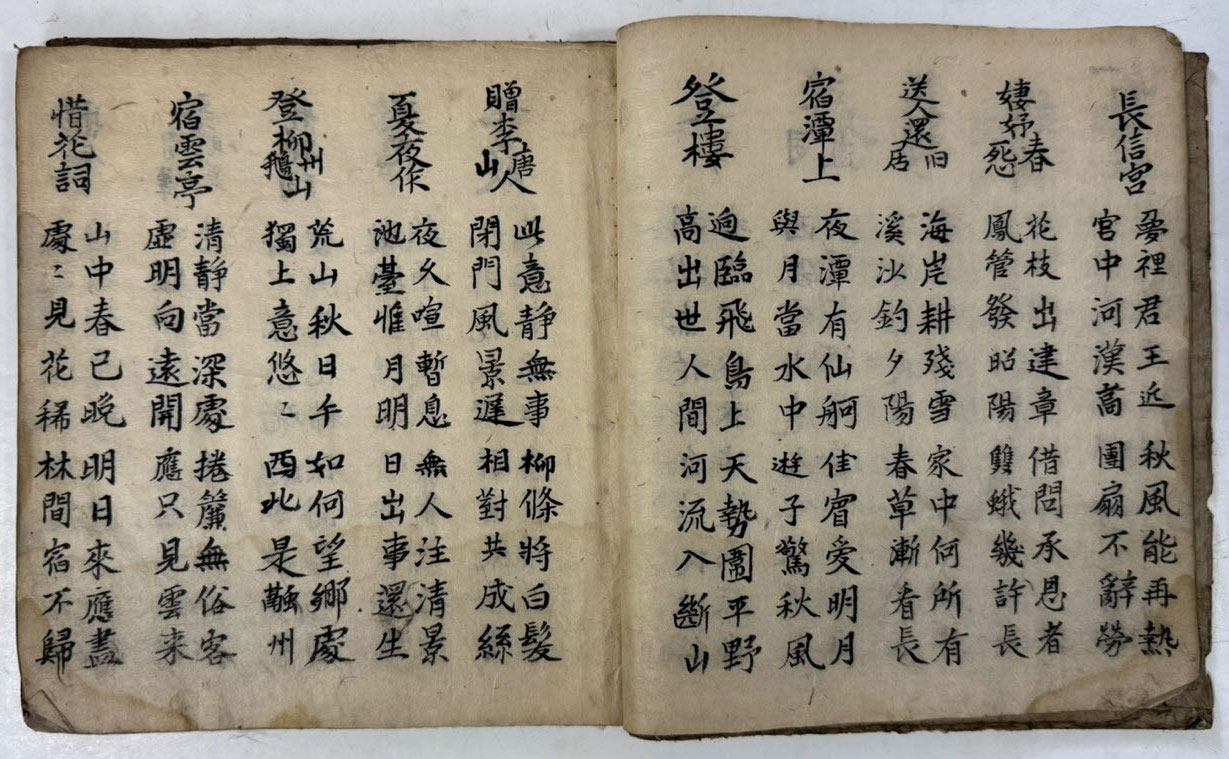 長信宮
夢裡君王近
宮中河漢高
秋風能再熱
團扇不辭勞
婕妤春怨
花枝出建章
鳳管發昭陽
借問承恩者
雙蛾幾許長
送人還旧居
海岸耕殘雪
溪沙釣夕陽
家中何所有
春草漸看長
宿潭上
夜潭有仙舸
與月當水中
佳宵愛明月
遊子驚秋風
登樓
迥臨飛鳥上
高出世人間
天勢圍平野
河流入斷山
贈李唐山人
此意靜無事
閉門風景遲
柳條將白髮
相對共成絲
夏夜作
夜久喧暫息
池臺惟月明
無人注清景
日出事還生
登柳州鵝山
荒山秋日午
獨上意悠〻
如何望鄉處
西北是融州
宿雲亭
清靜當深處
虛明向遠開
捲簾無俗客
應只見雲来
惜花詞
山中春已晚
處〻見花稀
明日來應盡
林間宿不歸